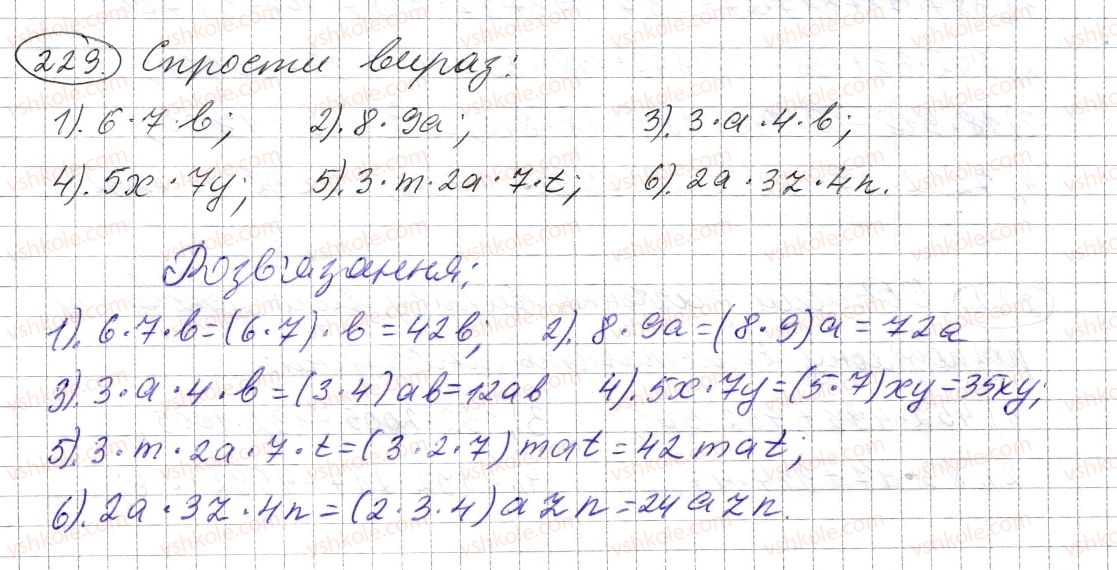 229. Спрости вираз:
1). 6·7·b; 2). 8·9a; 3). 3·a·4·b;
4). 5x·7y; 5). 3·m·2a·7·t; 6). 2a·3z·4n.
Розв'язання:
1). 6·7·b=(6·7)·b=42b; 2). 8·9a=(8·9)a=72a
3). 3·a·4·b=(3·4)ab=12ab 4). 5x·7y=(5·7)xy=35xy;
5). 3·m·2a·7·t=(3·2·7)mat=42mat;
6). 2a·3z·4n=(2·3·4)azn=24azn.